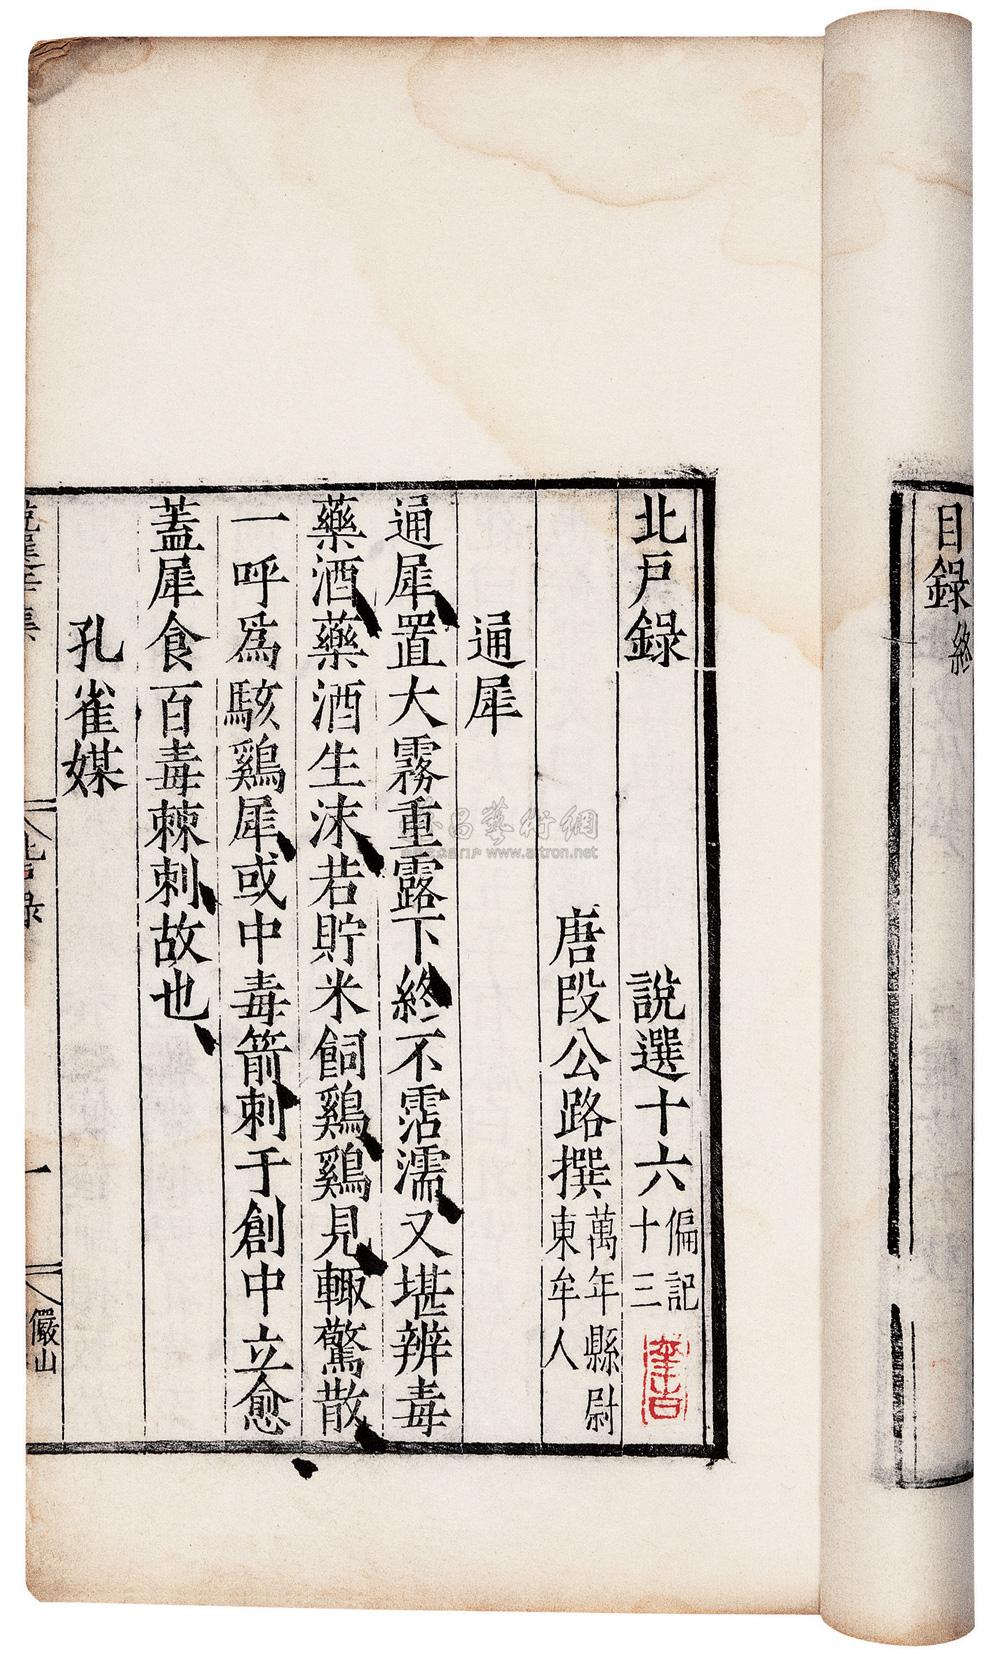 目錄終
北戸錄
說選十六偏記
十三
唐段公路撰萬年縣尉
東牟人
通犀
通犀置大霧重露下終不霑濡又堪辨毒
藥酒藥酒生沫若貯米飼鷄鷄見輙驚散
一呼爲駭鷄犀或中毒箭刺于創中立愈
蓋犀食百毒棘刺故也
孔雀媒
北戸錄
一
儼山
www.artron.net